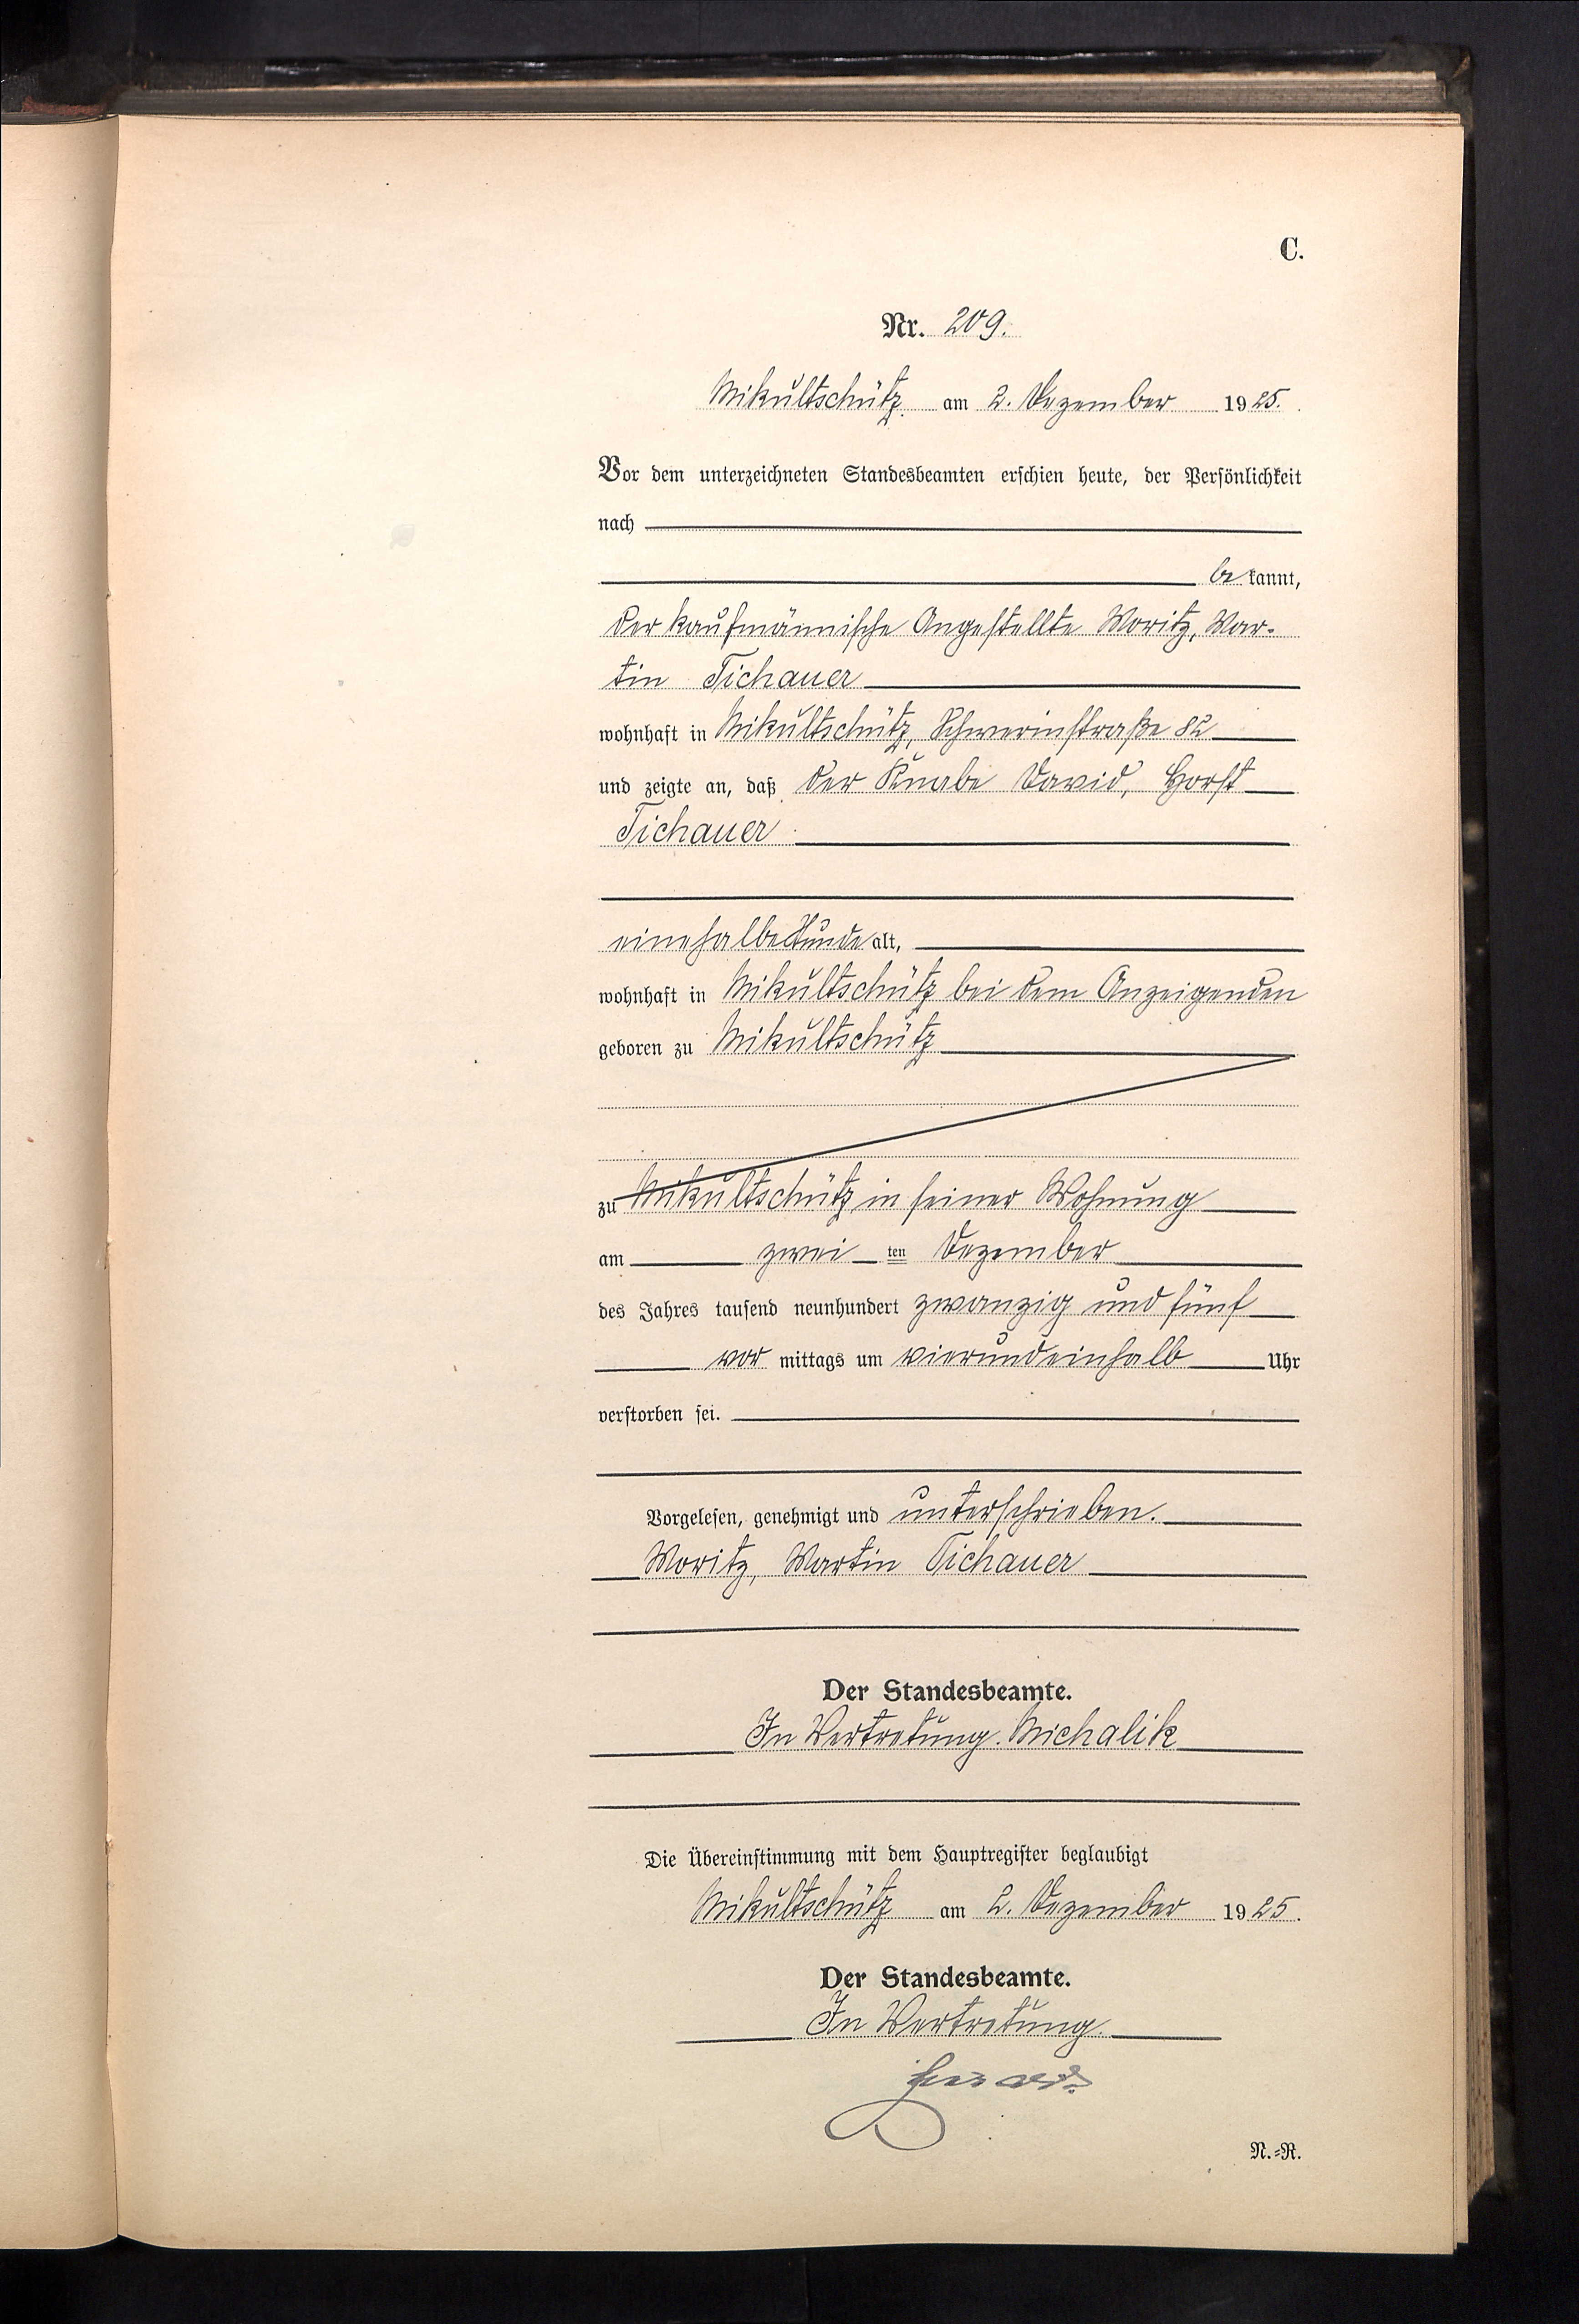 C.
Nr. 209.
Mikultschütz am 2. Dezember 1925.
Vor dem unterzeichneten Standesbeamten erschien heute, der Persönlichkeit
nach
bekannt,
der kaufmännische Angestellte Moritz, Mar-
tin Tichauer
wohnhaft in Mikultschütz, Schwerinstraße 82
und zeigte an, daß der Knabe David, Horst
Tichauer
eine halbe Stunde alt,
wohnhaft in Mikultschütz bei dem Anzeigenden
geboren zu Mikultschütz
zu Mikultschütz in seiner Wohnung
am zwei ten Dezember
des Jahres tausend neunhundert zwanzig und fünf
vor mittags um vierundeinhalb Uhr
verstorben sei.
Vorgelesen, genehmigt und unterschrieben.
Moritz, Martin Tichauer
Der Standesbeamte.
In Vertretung. Michalik
Die Übereinstimmung mit dem Hauptregister beglaubigt
Mikultschütz am 2. Dezember 1925.
Der Standesbeamte.
In Vertretung.
N.=R.